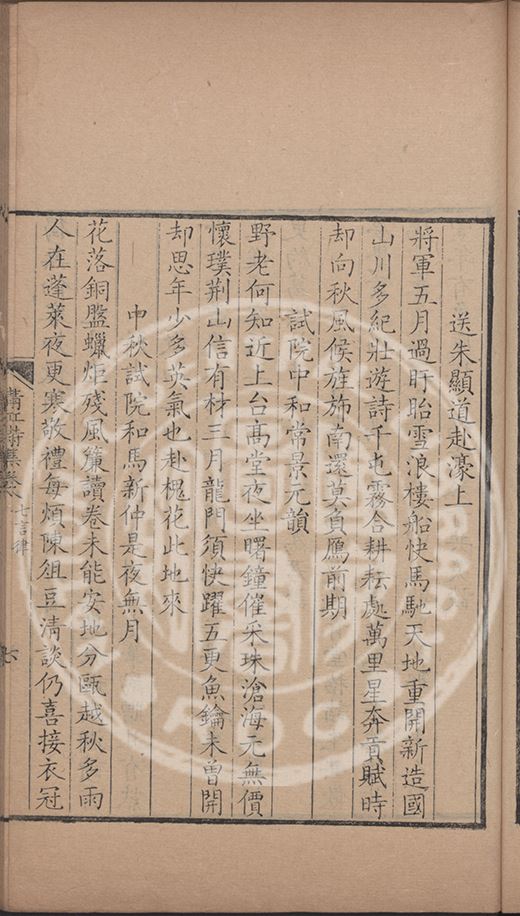 送朱顯道赴濠上
將軍五月過盱眙雪浪樓船快馬馳天地重開新造國
山川多紀壯遊詩千屯霧合耕耘處萬里星奔貢賦時
却向秋風候旌斾南還莫負鴈前期
試院中和常景元韻
野老何知近上台髙堂夜坐曙鐘催采珠滄海元無價
懷璞荆山信有材三月龍門須快躍五更魚鑰未曽開
却思年少多英氣也赴槐花此地來
中秋試院和馬新仲是夜無月
花落銅盤蠟炬殘風簾讀卷未能安地分甌越秋多雨
人在蓬萊夜更寒敬禮每煩陳俎豆清談仍喜接衣冠
詩集卷
七言律